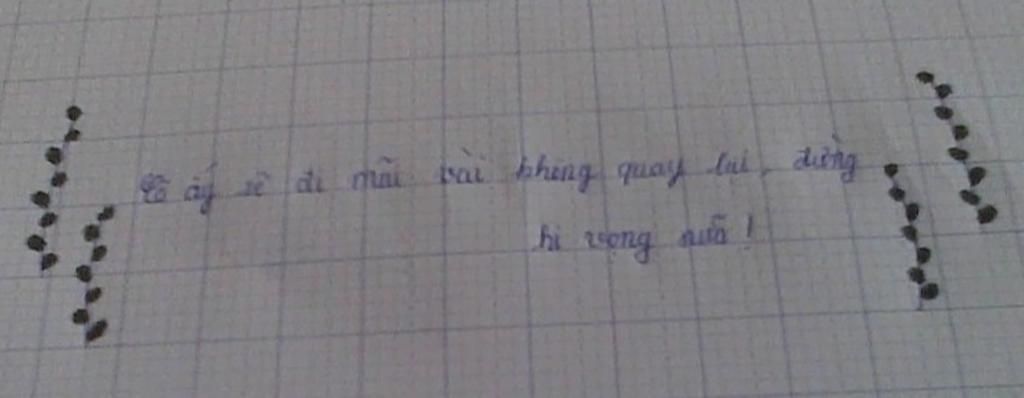 Cô ấy sẽ đi mãi và không quay lại, đừng
hi vọng nữa!